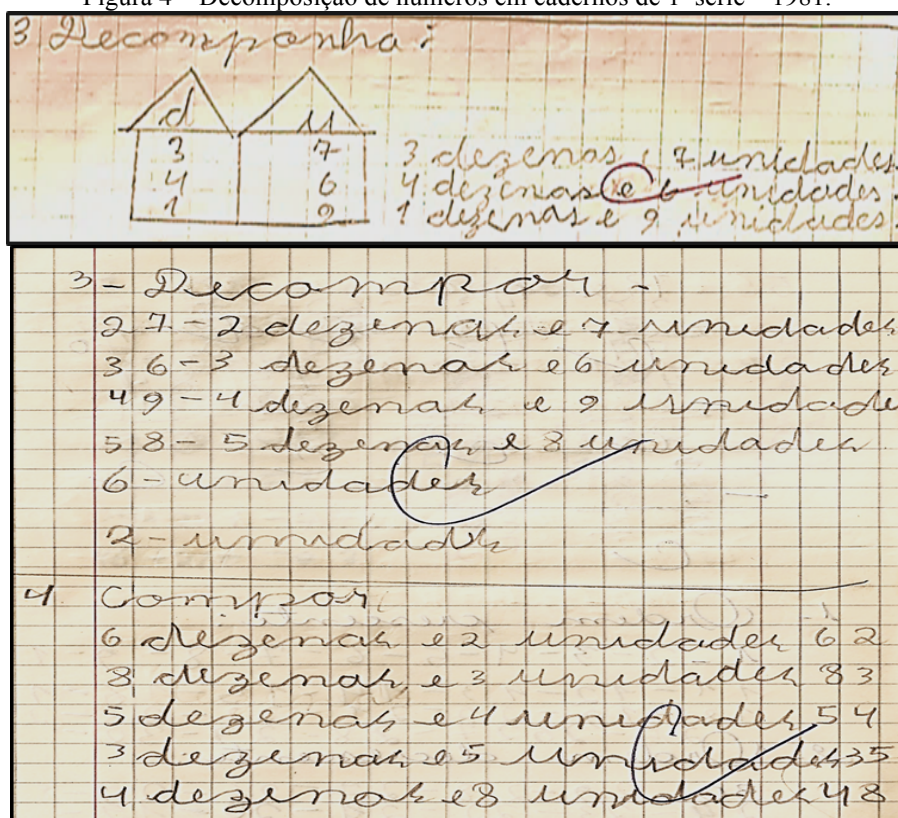 Figura 4 – Decomposição de números em cadernos de 1ª série – 1981.
3 Decomponha:
d u
3 7 3 dezenas e 7 unidades.
4 6 4 dezenas e 6 unidades.
1 9 1 dezenas e 9 unidades.
3 - Decompor -
27 - 2 dezenas e 7 unidades
36 - 3 dezenas e 6 unidades
49 - 4 dezenas e 9 unidade
58 - 5 dezenas e 8 unidades
6 - unidades
2 - unidades
4 Compor
6 dezenas e 2 unidades 62
8 dezenas e 3 unidades 83
5 dezenas e 4 unidades 54
3 dezenas e 5 unidades 35
4 dezenas e 8 unidades 48